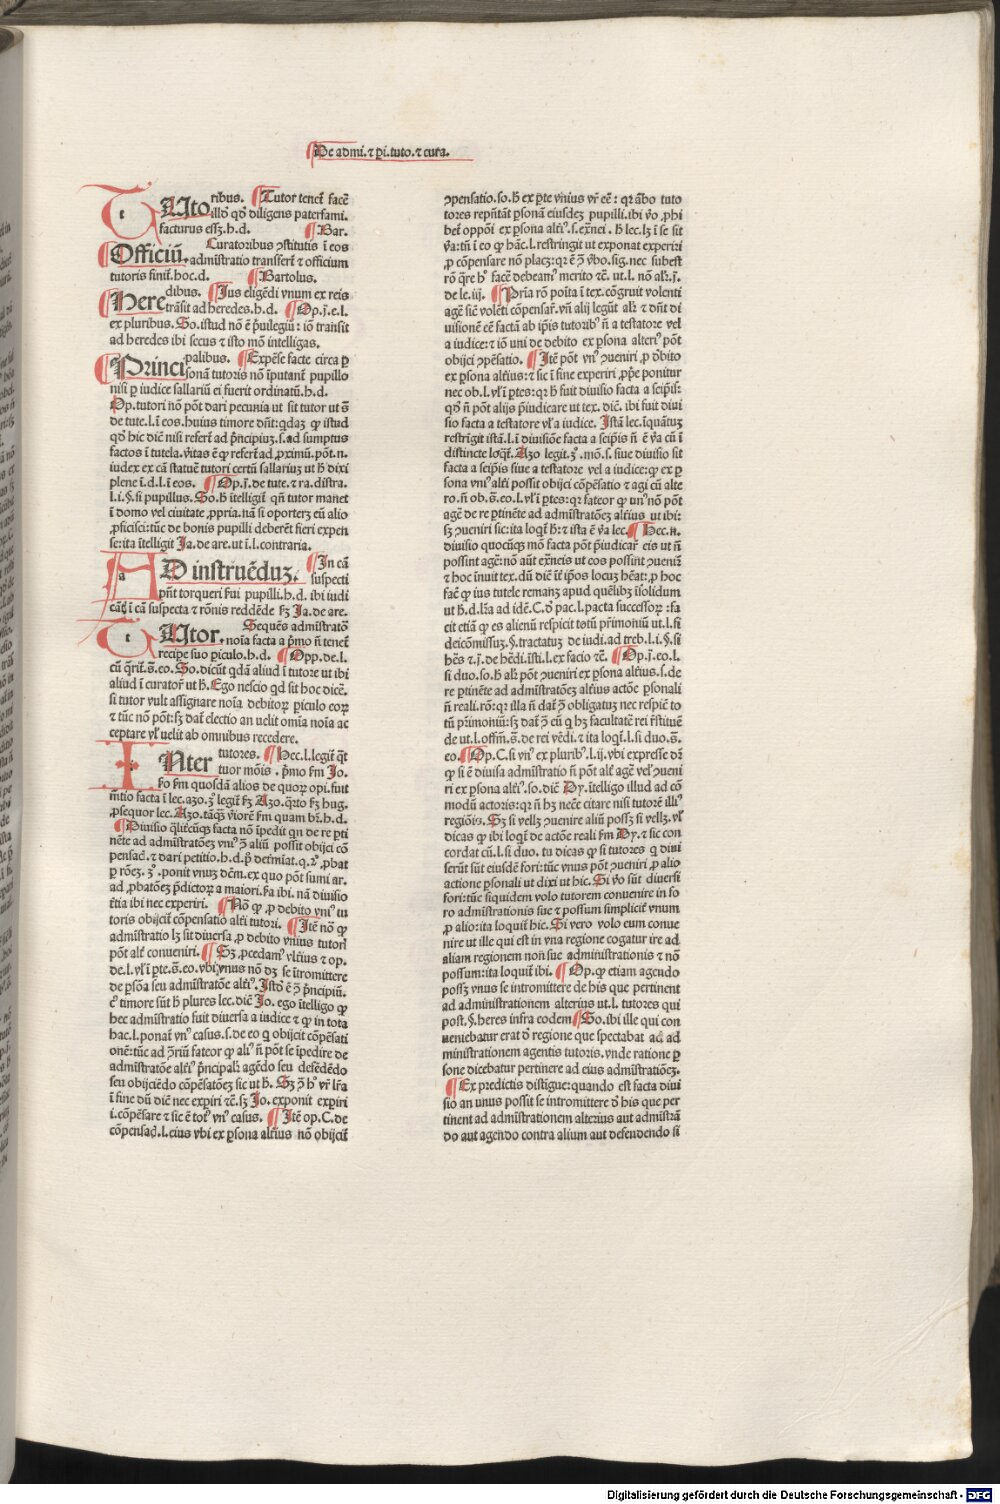 De admi. ⁊ ꝑi. tuto. ⁊ cura.
TUto ribus. Tutor tenet̄ facē
illō qd̄ diligens paterfami.
facturus esſꝫ. h. d. Bar.
Officiū. Curatoribus ꝯstitutis ī eos
admīstratio transfert̄ ⁊ officium
tutoris finit̄. hoc. d. Bartolus.
Here dibus. Jus eligēdi vnum ex reis
trāsit ad heredes. h. d. Op. j. e. l.
ex pluribus. So. istud nō ē p̄uilegiū: iō transit
ad heredes ibi secus ⁊ isto mō intelligas.
Princi palibus. Expēse facte circa ꝑ
sonā tutoris nō īputant̄ pupillo
nisi ꝑ iudice sallariū ei fuerit ordinatū. h. d.
Op. tutori nō pōt dari pecunia ut sit tutor ut s̄
de tute. l. ī eos. huius timore dn̄t: qdaꝫ ꝙ istud
qd̄ hic diēn nisi refert̄ ad p̄ncipiuꝫ. s. ad sumptus
factos ī tutela. v̄itas ē ꝙ refert̄ ad ꝓximū. pōt. n.
iudex ex cā statuē tutori certū sallariuꝫ ut h̄ dixi
plene ī. d. l. ī eos. Op. j. de tute. ⁊ ra. distra.
l. i. §. si pupillus. So. h̄ ītelligit̄ qn̄ tutor manet
ī domo vel ciuitate ꝓpria. nā si oporteꝫ eū alio
ꝓficisci: tūc de bonis pupilli deberēt fieri expen
se: ita ītelligit Ja. de are. ut ī. l. contraria.
AD instruēduꝫ. In cā
suspecti
pn̄t torqueri ẜui pupilli. h. d. ibi iudi
cāt̄ ī cā suspecta ⁊ rōnis reddēde ẜꝫ Ja. de are.
TUtor. Sequēs admistratō
noīa facta a p̄mo n̄ tenet̄
recipe suo ꝑiculo. h. d. Opp. de. l.
cū q̄rit̄. s̄. eo. So. dicūt qdā aliud ī tutore ut ibi
aliud ī curator̄ ut h̄. Ego nescio qd sit hoc dicē.
si tutor vult assignare noīa debitoꝝ ꝑiculo eoꝝ
⁊ tūc nō pōt: sꝫ dat̄ electio an uelit omīa noīa ac
ceptare vl̓ uelit ab omnibus recedere.
INter tutores. Hec. l. legit̄ q̄t
tuor mōis. p̄mo ẜm Jo.
ẜo ẜm quosdā alios de quoꝝ opi. fuit
m̄tio facta ī lec. azo. ꝫ° legit̄ ẜꝫ Azo. q̄rto ẜꝫ hug.
ꝓsequor lec. Azo. tāqꝫ v̄iorē ẜm quam br̄. h. d.
Diuisio ql̄itcūqꝫ facta nō īpedit qn de re ꝑti
nēte ad admistratōeꝫ vniꝰ ꝯ̄ aliū possit obijci cō
pensac̄. ⁊ dari petitio. h. d. p̄ det̄miat. q. rꝰ. ꝓbat
ꝑ rōeꝫ. ꝫ°. ponit vnuꝫ dc̄m. ex quo pōt sumi ar.
ad ꝓbatōeꝫ p̄dictoꝝ a maiori. ẜa ibi. nā diuisio
t̄tia ibi nec experiri. Nō ꝙ ꝓ debito vniꝰ tu
toris obijcit̄ cōpensatio alt̄i tutori. Itē nō ꝙ
admīstratio lꝫ sit diuersa ꝓ debito vnius tutori
pōt alt̄ conueniri. Sꝫ ꝓcedam vlt̄ius ⁊ op.
de. l. vl̓ ī ꝑte. s̄. eo. vbi vnus nō dꝫ se ītromittere
de ꝑsōa seu admistratōe alt̄iꝰ. Istō ē ꝯ̄ p̄ncipiū.
cꝰ timore sūt h̄ plures lec. diēt Jo. ego ītelligo ꝙ
hec admistratio fuit diuersa a iudice ⁊ ꝙ in tota
hac. l. ponat̄ vnꝰ casus. s. de eo q obijcit cōpēsati
onē: tūc ad ꝯ̄riū fateor ꝙ aliꝰ n̄ pōt se īpedire de
admistratōe alt̄iꝰ p̄ncipalr̄ agēdo seu defēdēdo
seu obijciēdo cōpēsatōeꝫ sic ut h̄. Sꝫ ꝯ̄ hꝰ vr̄ lr̄a
ī fine dū diēt nec exꝑiri ⁊c̄. sꝫ Jo. exponit exꝑiri
i. cōpēsare ⁊ sic ē totꝰ vnꝰ casus. Itē op. C. de
cōpensac̄. l. eius vbi ex ꝑsona alt̄ius nō obijcit̄
ꝯpensatio. so. h̄ ex ꝑte vnius vr̄ eē: qr ābo tuto
tores rep̄ntāt ꝑsonā eiusdeꝫ pupilli. ibi v̄o ꝓhi
bet̄ oppōi ex ꝑsona alt̄iꝰ. s. ex̄nei. h̄ lec. lꝫ ī se sit
v̄a: tn̄ ī eo ꝙ hāc. l. restringit ut exponat experiri
ꝓ cōpensare nō placꝫ: qr ē ꝯ̄ v̄bo. sig. nec subest
rō q̄re hꝰ facē debeamꝰ merito ⁊c̄. ut. l. nō alr̄. j.
de le. iij. Pr̄ia rō poīta ī tex. cōgruit volenti
agē sic volēti cōpensar̄. vn̄ alij legūt alr̄ ⁊ dn̄t di
uisionē eē factā ab ip̄is tutoribꝰ n̄ a testatore vel
a iudice: ⁊ iō uni de debito ex ꝑsona alteriꝰ pōt
obijci ꝯpēsatio. Itē pōt vnꝰ ꝯueniri ꝓ d̄bito
ex ꝑsona alt̄ius: ⁊ sic ī fine experiri ꝓpe ponitur
nec ob. l. vl̓ ī ꝑtes: qr h̄ fuit diuisio facta a seip̄is:
qd̄ n̄ pōt alijs p̄iudicare ut tex. diēt. ibi fuit diui
sio facta a testatore vl̓ a iudice. Istā lec. īquātuꝫ
restrīgit istā. l. ī diuisiōe facta a seip̄is n̄ ē v̄a cū ī
distincte loqt̄. Azo legit. ꝫ°. mō. s. siue diuisio sit
facta a seip̄is siue a testatore vel a iudice: ꝙ ex ꝑ
sona vniꝰ alt̄i possit obijci cōpēsatio ⁊ agi cū alte
ro. n̄ ob. s̄. eo. l. vl̓ ī ꝑtes: qr fateor ꝙ unꝰ nō pōt
agē de re ꝑtinēte ad admistratōeꝫ alt̄ius ut ibi:
sꝫ ꝯueniri sic: ita loqt̄ h̄: ⁊ ista ē v̄a lec. Hec. n.
diuisio quocūqꝫ mō facta pōt p̄iudicar̄ eis ut n̄
possint agē: nō aūt ex̄neis ut eos possint ꝯueniē
⁊ hoc īnuit tex. dū diēt īt̄ īp̄os locuꝫ hēat: ꝓ hoc
facē ꝙ ius tutele remanꝫ apud quēlibꝫ īsolidum
ut h̄. d. lr̄a ad idē. C. d̄ pac. l. pacta successoꝝ: fa
cit etiā ꝙ es alienū respicit totū pr̄imoniū ut. l. si
deicōmissuꝫ. §. tractatuꝫ de iudi. ad treb. l. i. §. si
hēs ⁊ j. de hēdi. īsti. l. ex facio ⁊c̄. Op. j. eo. l.
si duo. so. h̄ alr̄ pōt ꝯueniri ex ꝑsona alt̄ius. s. de
re ꝑtinēte ad admistratōeꝫ alt̄ius actōe ꝑsonali
n̄ reali. rō: qr illa n̄ dat̄ ꝯ̄ obligatuꝫ nec respic̄ to
tū pr̄imoniū: sꝫ dat̄ ꝯ̄ eū q hꝫ facultatē rei r̄stituē
de ut. l. offm̄. s̄. de rei vēdi. ⁊ ita loqt̄. l. si duo. s̄.
eo. Op. C. si vnꝰ ex pluribꝰ. l. ij. vbi expresse dr̄
ꝙ si ē diuisa admīstratio n̄ pōt alt̄ agē vel ꝯueni
ri ex ꝑsona alt̄iꝰ. so. diēt Dy. ītelligo illud ad cō
modū actoris: qr n̄ hꝫ necē citare nisi tutorē illiꝰ
regiōis. Sꝫ si velꝫ ꝯuenire aliū possꝫ si vellꝫ. vl̓
dicas ꝙ ibi loqt̄ de actōe reali ẜm Dy. ⁊ sic con
cordat cū. l. si duo. tu dicas ꝙ si tutores q diui
serūt sūt eiusdē fori: tūc vnus pōt ꝯueniri ꝓ alio
actione ꝑsonali ut dixi ut hic. Si v̄o sūt diuersi
fori: tūc siquidem volo tutorem conuenire in fo
ro admistrationis sue ⁊ possum simplicit̄ vnum
ꝓ alio: ita loquit̄ hic. Si vero volo eum conue
nire ut ille qui est in vna regione cogatur ire ad
aliam regionem non sue administrationis ⁊ nō
possum: ita loquit̄ ibi. Op. ꝙ etiam agendo
possꝫ vnus se intromittere de his que pertinent
ad administrationem alterius ut. l. tutores qui
post. §. heres infra eodem So. ibi ille qui con
ueniebatur erat d̄ regione que spectabat ad ad
ministrationem agentis tutoris. vnde ratione ꝑ
sone dicebatur pertinere ad eius admīstratiōeꝫ.
Ex predictis distigue: quando est facta diui
sio an unus possit se intromittere d̄ his que per
tinent ad admīstrationem alterius aut admīstrā
do aut agendo contra alium aut defendendo si
Digitalisierung gefördert durch die Deutsche Forschungsgemeinschaft - DFG